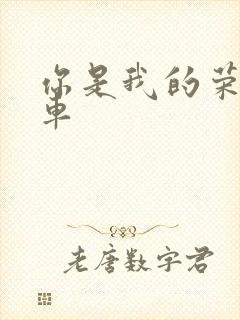 你是我的荣
单
老唐数字君